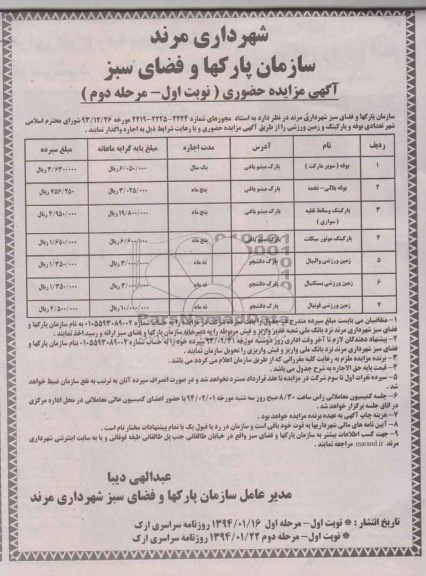 شهرداری مرند
سازمان پارکها و فضای سبز
آگهی مزایده حضوری ( نوبت اول- مرحله دوم )
سازمان پارکها و فضای سبز شهرداری مرند در نظر دارد به استناد مجوزهای شماره ۲۲۲۴-۲۲۲۵-۲۲۱۹ مورخه ۹۳/۱۲/۲۶ شورای محترم اسلامی
شهر تعدادی بوفه و پارکینگ و زمین ورزشی را از طریق آگهی مزایده حضوری و با رعایت شرایط ذیل به اجاره واگذار نمایند .
ردیف نام آدرس مدت اجاره مبلغ پایه کرایه ماهانه مبلغ سپرده
۱ بوفه (سوپر مارکت ) پارک میشو باغی یک سال ۶/۰۵۰/۰۰۰ ریال ۳/۶۳۰/۰۰۰ ریال
۲ بوفه بلالی- تخمه پارک میشو باغی پنج ماه ۳/۰۲۵/۰۰۰ ریال ۷۵۶/۲۵۰ ریال
۳ پارکینگ وسائط نقلیه (سواری ) پارک میشو باغی پنج ماه ۱۹/۸۰۰/۰۰۰ ریال ۴/۹۵۰/۰۰۰ ریال
۴ پارکینگ موتور سیکلت پارک میشو باغی پنج ماه ۶/۶۰۰/۰۰۰ ریال ۱/۶۵۰/۰۰۰ ریال
۵ زمین ورزشی والیبال پارک دانشجو نه ماه ۳/۰۰۰/۰۰۰ ریال ۱/۳۵۰/۰۰۰ ریال
۶ زمین ورزشی بسکتبال پارک دانشجو نه ماه ۳/۰۰۰/۰۰۰ ریال ۱/۳۵۰/۰۰۰ ریال
۷ زمین ورزشی فوتبال پارک دانشجو نه ماه ۱۰/۰۰۰/۰۰۰ ریال ۴/۵۰۰/۰۰۰ ریال
۱- متقاضیان می بایست مبلغ سپرده مندرج در جدول را بعنوان سپرده شرکت در مزایده را به حساب شماره ۰۱۰۵۵۹۳۰۸۹۰۰۲ به نام سازمان پارکها و
فضای سبز شهرداری مرند نزد بانک ملی شعبه غدیر واریز و فیش مربوطه را به دبیرخانه سازمان پارکها و فضای سبز ارائه و رسید اخذ نمایند .
۲- پیشنهاد دهندگان لازم تا آخر وقت اداری روز دوشنبه مورخه سپرده خود را به حساب شماره ۰۱۰۵۵۹۳۰۸۹۰۰۲ بنام سازمان پارکها و
فضای سبز شهرداری مرند نزد بانک ملی واریز و فیش واریزی را تحویل سازمان نمایند .
۳- برنده مزایده ملزم به رعایت کلیه مقرراتی که از طریق سازمان اعلام می گردد می باشد .
۴- قیمت پایه حق الاجاره به شرح جدول می باشد .
۵- سپرده نفرات اول تا سوم شرکت در مزایده تا عقد قرارداد مسترد نخواهد شد و در صورت انصراف سپرده آنان به ترتیب به نفع سازمان ضبط خواهد
شد .
۶- جلسه کمیسیون معاملاتی راس ساعت ۸/۳۰ صبح روز سه شنبه مورخه ۹۴/۰۲/۰۱ با حضور اعضای کمیسیون عالی معاملاتی در محل اداره مرکزی
در اتاق جلسه برگزار خواهد شد .
۷- هزینه چاپ آگهی به عهده برنده مزایده خواهد بود .
۸- آیین نامه های مالی شهرداریها به قوت خود باقی است و سازمان در رد یا قبول یک یا تمام پیشنهادات مختار تام است .
۹- جهت کسب اطلاعات بیشتر به سازمان پارکها و فضای سبز واقع در خیابان طالقانی جنب پل طالقانی طبقه فوقانی و یا به سایت اینترنتی شهرداری
مرند marand.ir مراجعه نمایید .
عبدالهی دیبا
مدیر عامل سازمان پارکها و فضای سبز شهرداری مرند
تاریخ انتشار : * نوبت اول- مرحله اول ۱۳۹۴/۰۱/۱۶ روزنامه سراسری ارک
* نوبت اول- مرحله دوم ۱۳۹۴/۰۱/۲۲ روزنامه سراسری ارک